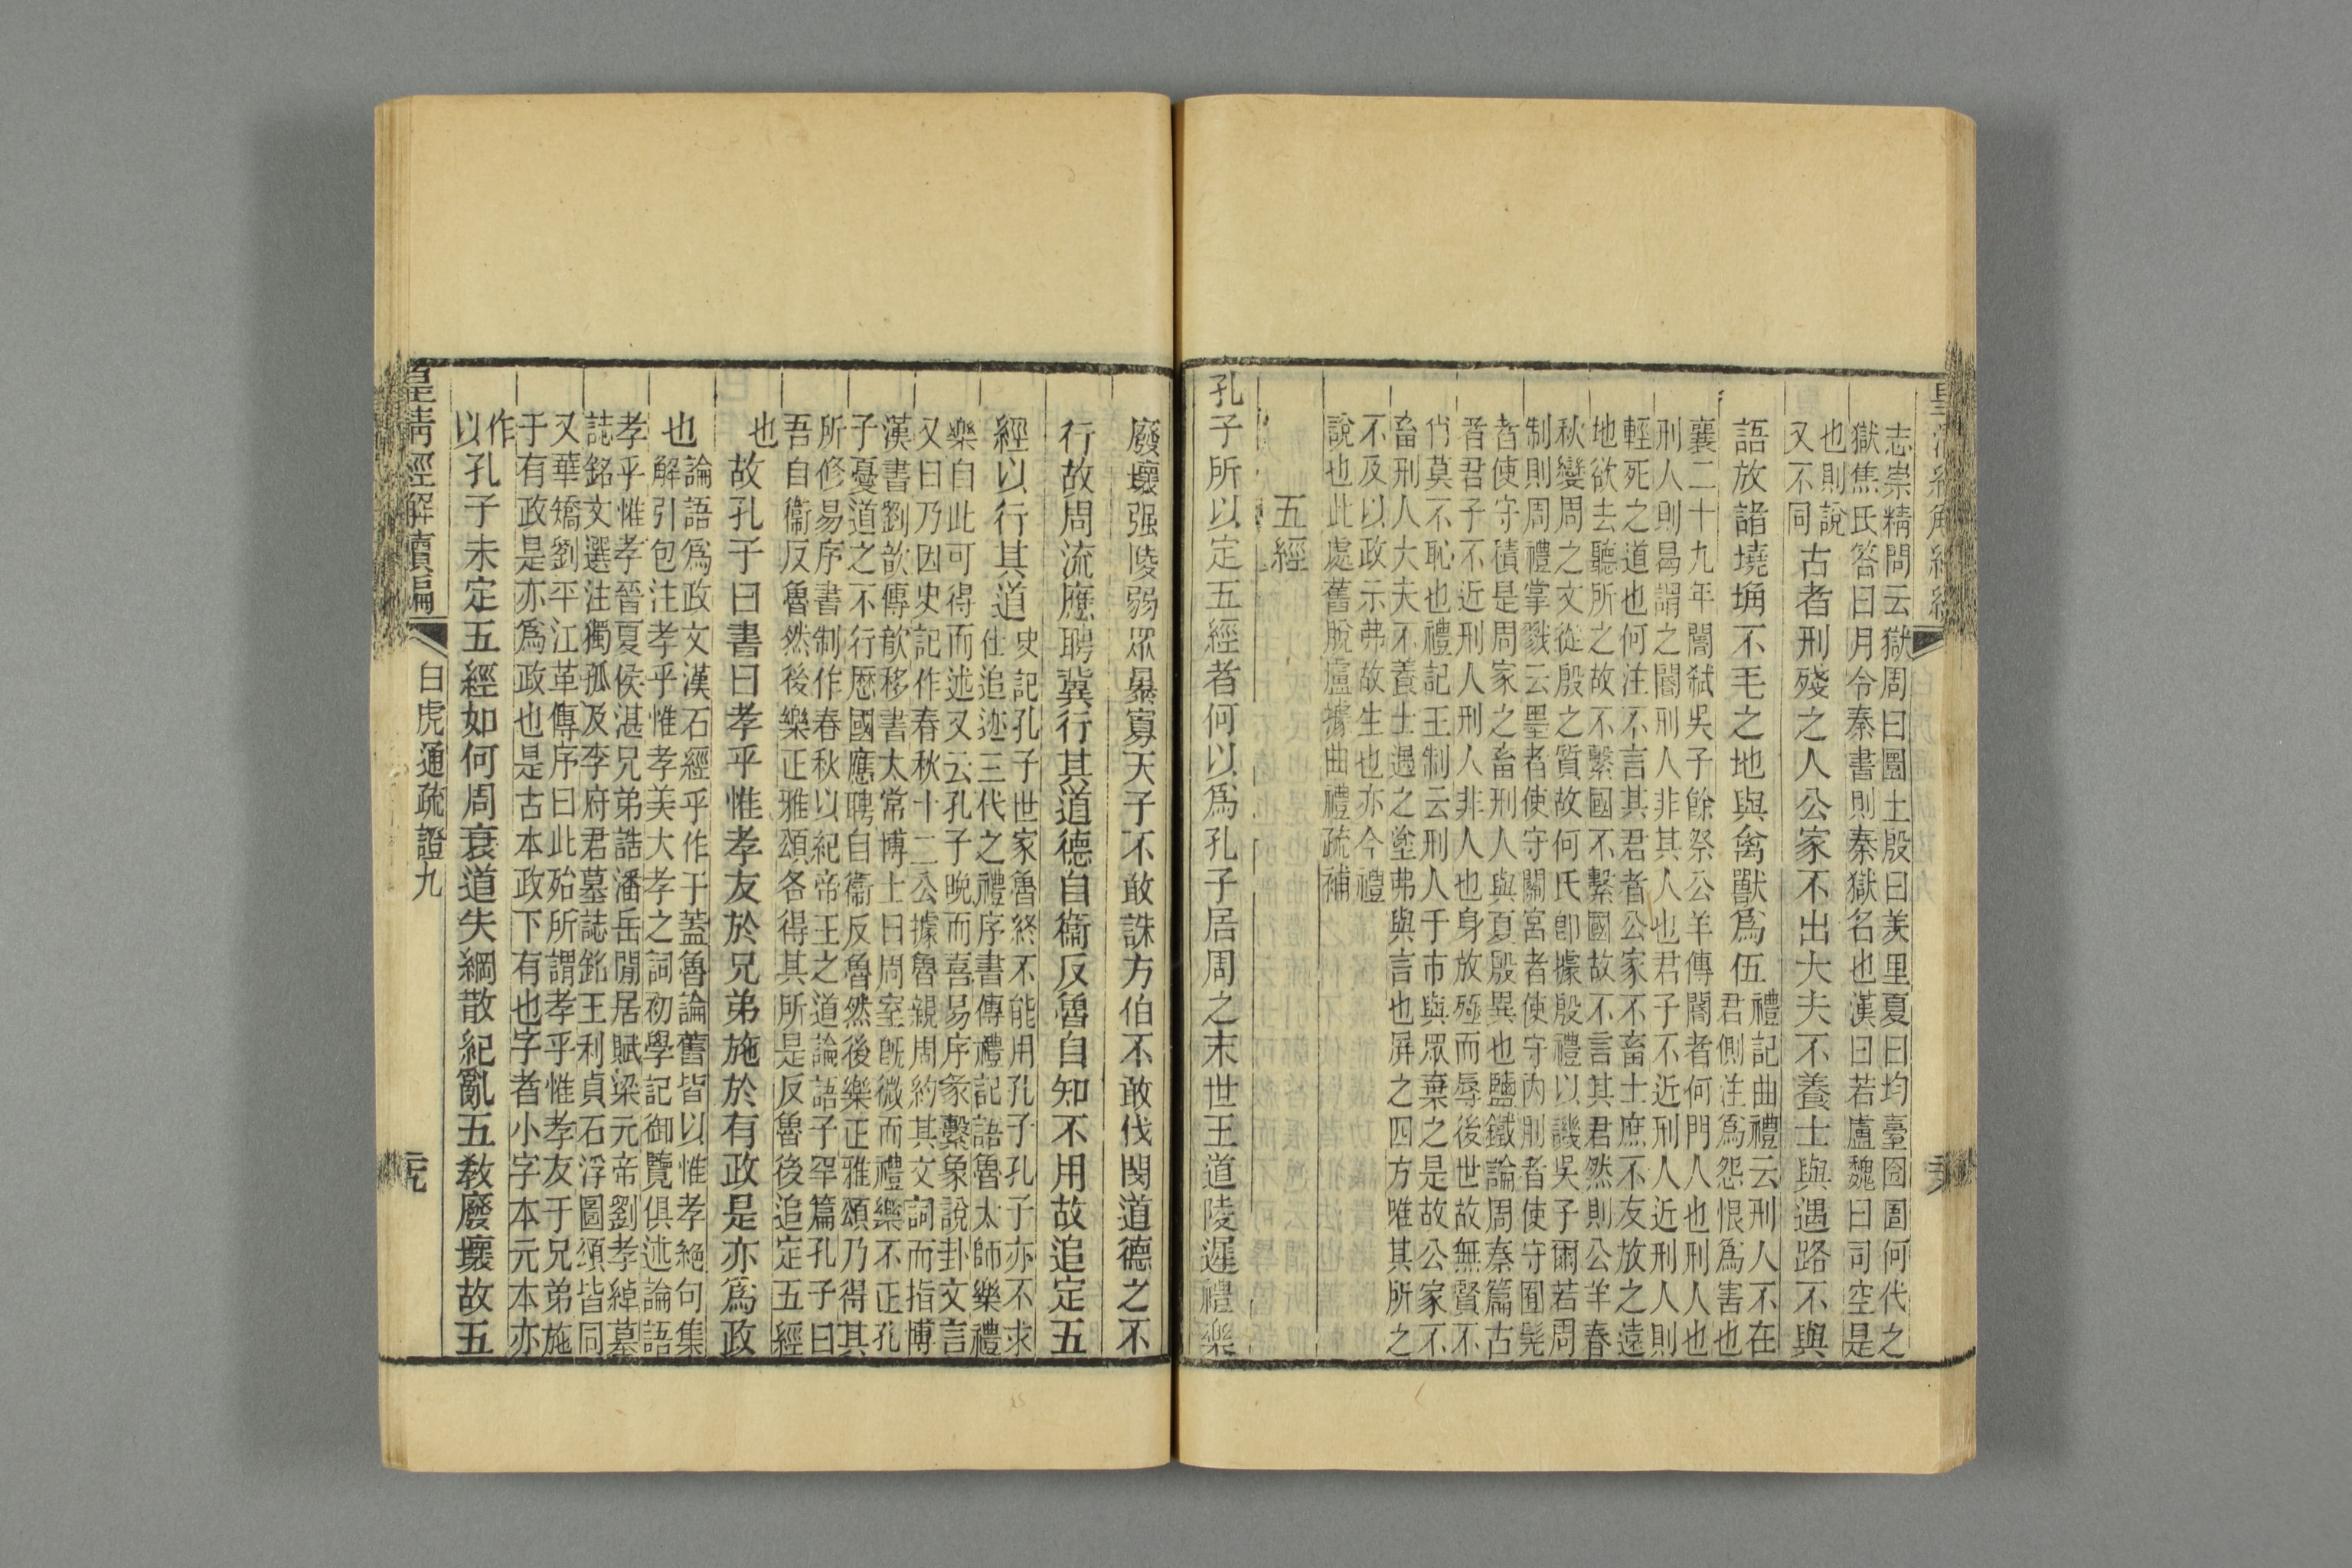 志崇精問云獄周曰圜土殷曰羑里夏曰均臺囹圄何代之
獄焦氏答曰月令秦書則秦獄名也漢曰若盧魏曰司空是
也則說
又不同
古者刑殘之人公家不出大夫不養士與遇路不與
語放諸墝埆不毛之地與禽獸為伍
禮記曲禮云刑人不在
君側注為怨恨為害也
襄二十九年閽弒吳子餘祭公羊傳閽者何門人也刑人也
刑人則曷謂之閽刑人非其人也君子不近刑人近刑人則
輕死之道也何注不言其君者公家不畜士庶不友放之遠
地欲去聽所之故不繫國不繫國故不言其君然則公羊春
秋變周之文從殷之質故何氏卽據殷禮以譏吳子爾若周
制則周禮掌戮云墨者使守關宮者使守內刖者使守囿髡
者使守積是周家之畜刑人與夏殷異也鹽鐵論周秦篇古
者君子不近刑人刑人非人也身放殛而辱後世故無賢不
肖莫不恥也禮記王制云刑人于市與眾棄之是故公家不
畜刑人大夫不養士遇之塗弗與言也屏之四方唯其所之
不及以政示弗故生也亦今禮
說也此處舊脫盧據曲禮疏補
五經
孔子所以定五經者何以為孔子居周之末世王道陵遲禮樂
廢壞强陵弱眾暴寡天子不敢誅方伯不敢伐閔道德之不
行故周流應聘冀行其道德自衞反魯自知不用故追定五
經以行其道
史記孔子世家魯終不能用孔子孔子亦不求
仕追迹三代之禮序書傳禮記語魯太師樂禮
樂自此可得而述又云孔子晚而喜易序彖繫象說卦文言
又曰乃因史記作春秋十二公據魯親周約其文詞而指博
漢書劉歆傳歆移書太常博士曰周室旣微而禮樂不正孔
子憂道之不行歷國應聘自衞反魯然後樂正雅頌乃得其
所修易序書制作春秋以紀帝王之道論語子罕篇孔子曰
吾自衞反魯然後樂正雅頌各得其所是反魯後追定五經
也
故孔子曰書曰孝乎惟孝友於兄弟施於有政是亦為政
也
論語為政文漢石經乎作于蓋魯論舊皆以惟孝絕句集
解引包注孝乎惟孝美大孝之詞初學記御覽俱述論語
孝乎惟孝晉夏侯湛兄弟誥潘岳閒居賦梁元帝劉孝綽墓
誌銘文選注獨孤及李府君墓誌銘王利貞石浮圖頌皆同
又華矯劉平江革傳序曰此殆所謂孝乎惟孝友于兄弟施
于有政是亦為政也是古本政下有也字者小字本元本亦
作
以孔子未定五經如何周衰道失綱散紀亂五教廢壞故五
皇清經解續編
白虎通疏證九